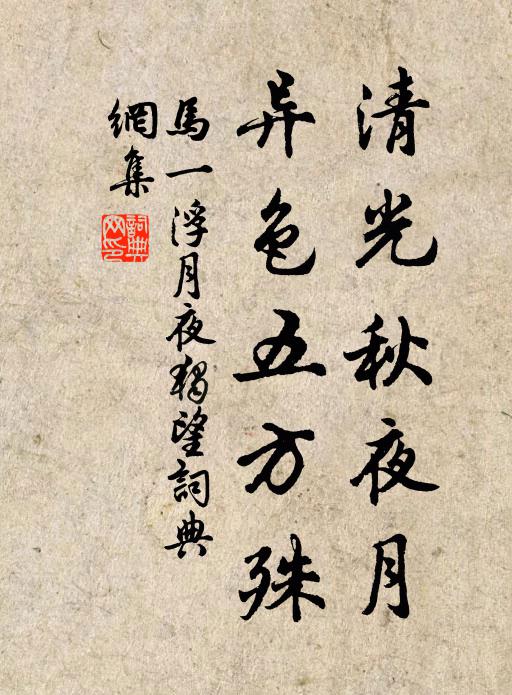 清光秋夜月
异色五方殊
馬一浮月夜獨望詞典
網集
詞典
网印